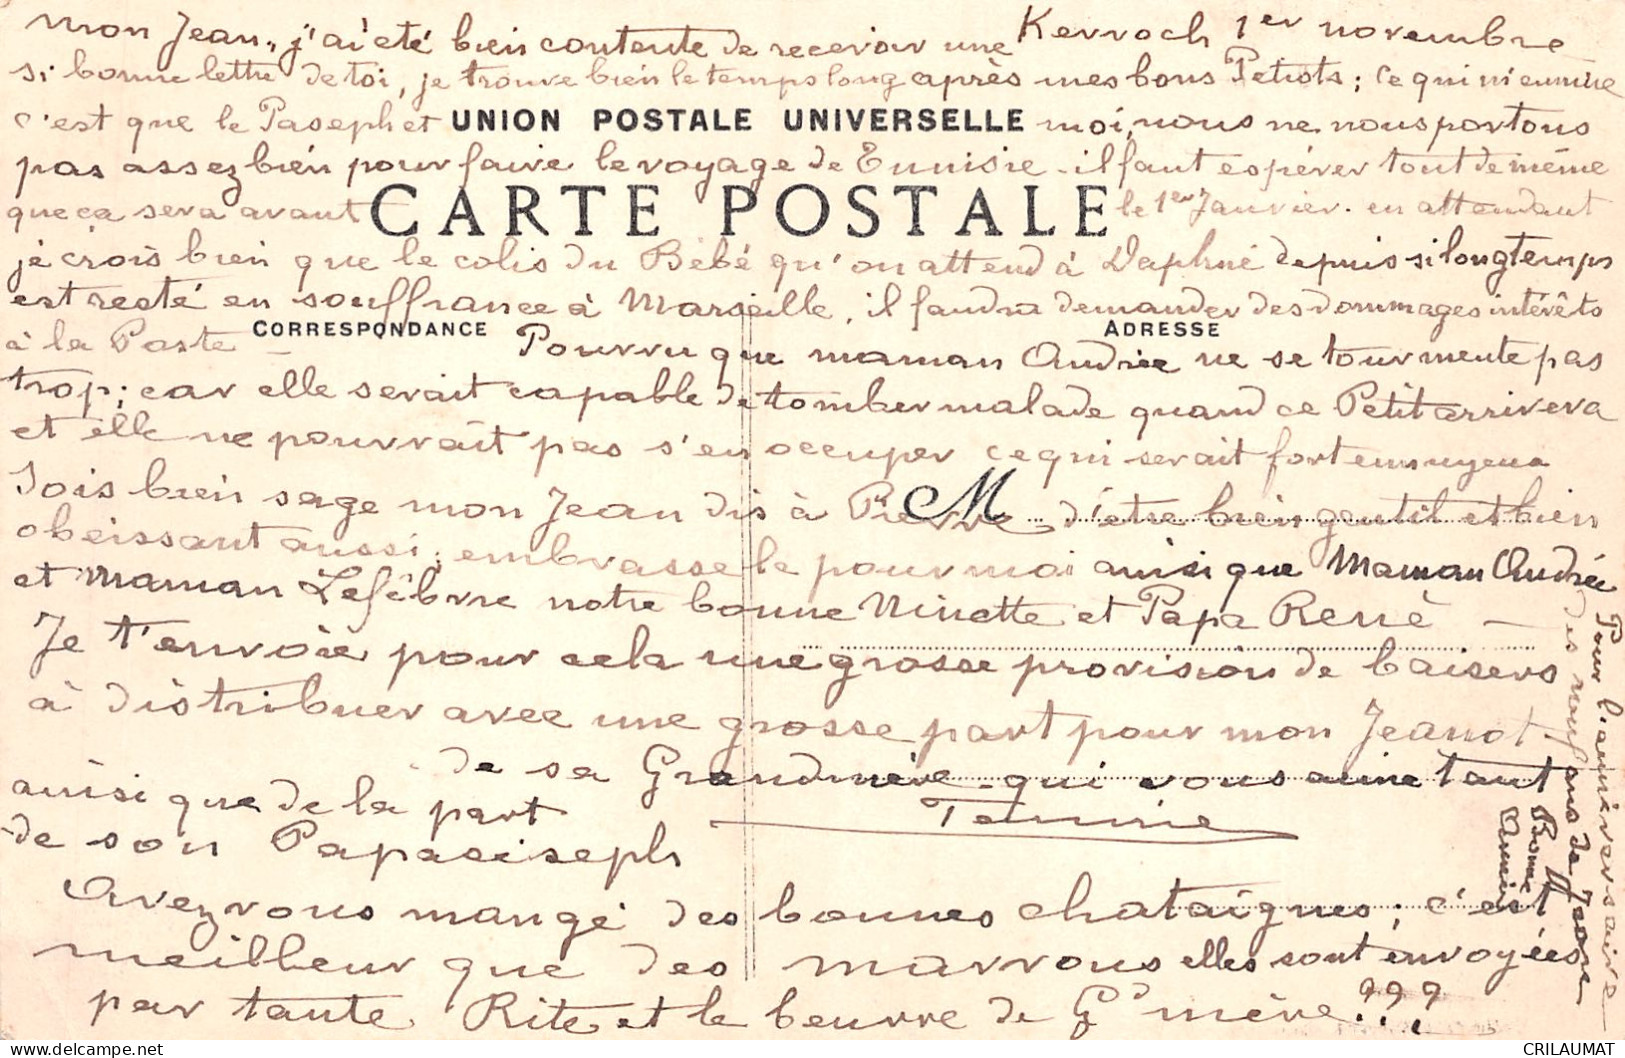 Kerroch 1er novembre
mon Jean, j'ai été bien contente de recevoir une
si bonne lettre de toi, je trouve bien le temps long après mes bons Petiots; Ce qui m'ennuie
c'est que le Paseph et UNION POSTALE UNIVERSELLE moi, nous ne nous portons
pas assez bien pour faire le voyage de Tunisie - il faut espérer tout de même
que ça sera avant CARTE POSTALE le 1er Janvier. en attendant
je crois bien que le colis du Bébé qu'on attend à Daphné depuis si longtemps
est resté en souffrance à Marseille, il faudra demander des dommages intérêts
à la Poste - CORRESPONDANCE ADRESSE
Pourvu que maman Andrée ne se tourmente pas
trop; car elle serait capable de tomber malade quand ce Petit arrivera
et elle ne pourrait pas s'en occuper ce qui serait fort ennuyeux
M
Sois bien sage mon Jean dis à Pierre d'être bien gentil et bien
obeissant aussi; embrasse le pour moi ainsi que Maman Andrée
et Maman Lefêbvre notre bonne Ninette et Papa René -
Je t'envoie pour cela une grosse provision de baisers
à distribuer avec une grosse part pour mon Jeanot
de sa Grandmère qui vous aime tant
ainsi que de la part
de son Papasiseph
Avez vous mangé des bonnes chataignes; c'est
meilleur que des marrons elles sont envoyées
par tante Rite et le beurre de Gd mère???
Pour l'anniversaire
des neuf ans de
Bonne
CRILAUMAT